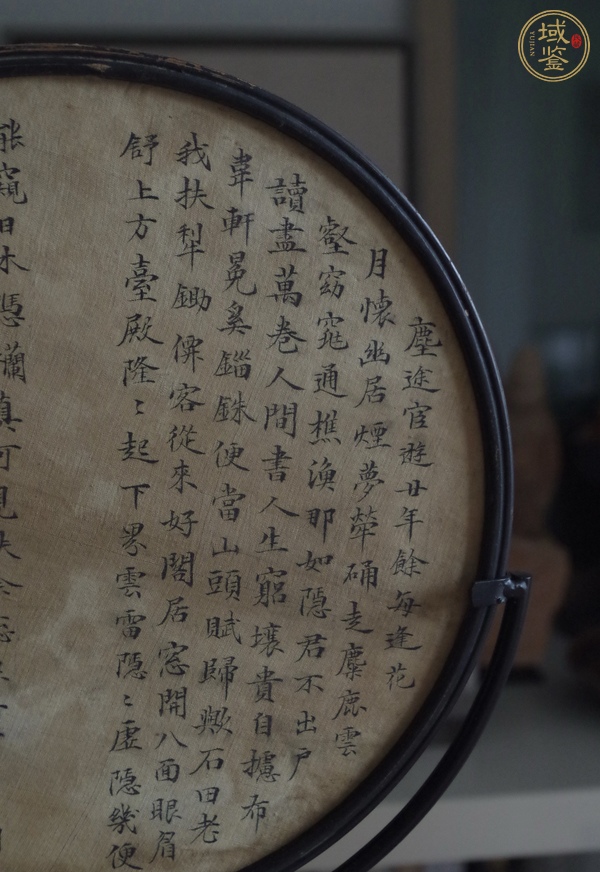 塵途官遊廿年餘每逢花
月懷幽居煙夢犖确走麋鹿雲
壑窈窕通樵漁那如隱君不出戶
讀盡萬卷人間書人生窮壤貴自攄布
韋軒冕奚錙銖便當山頭賦歸歟石田老
我扶犁鋤儕客從來好閣居窓開八面眼眉
舒上方臺殿隆〻起下界雲雷隱〻虛隱幾便
窺日木憑真可見
域鑒
YUJIAN